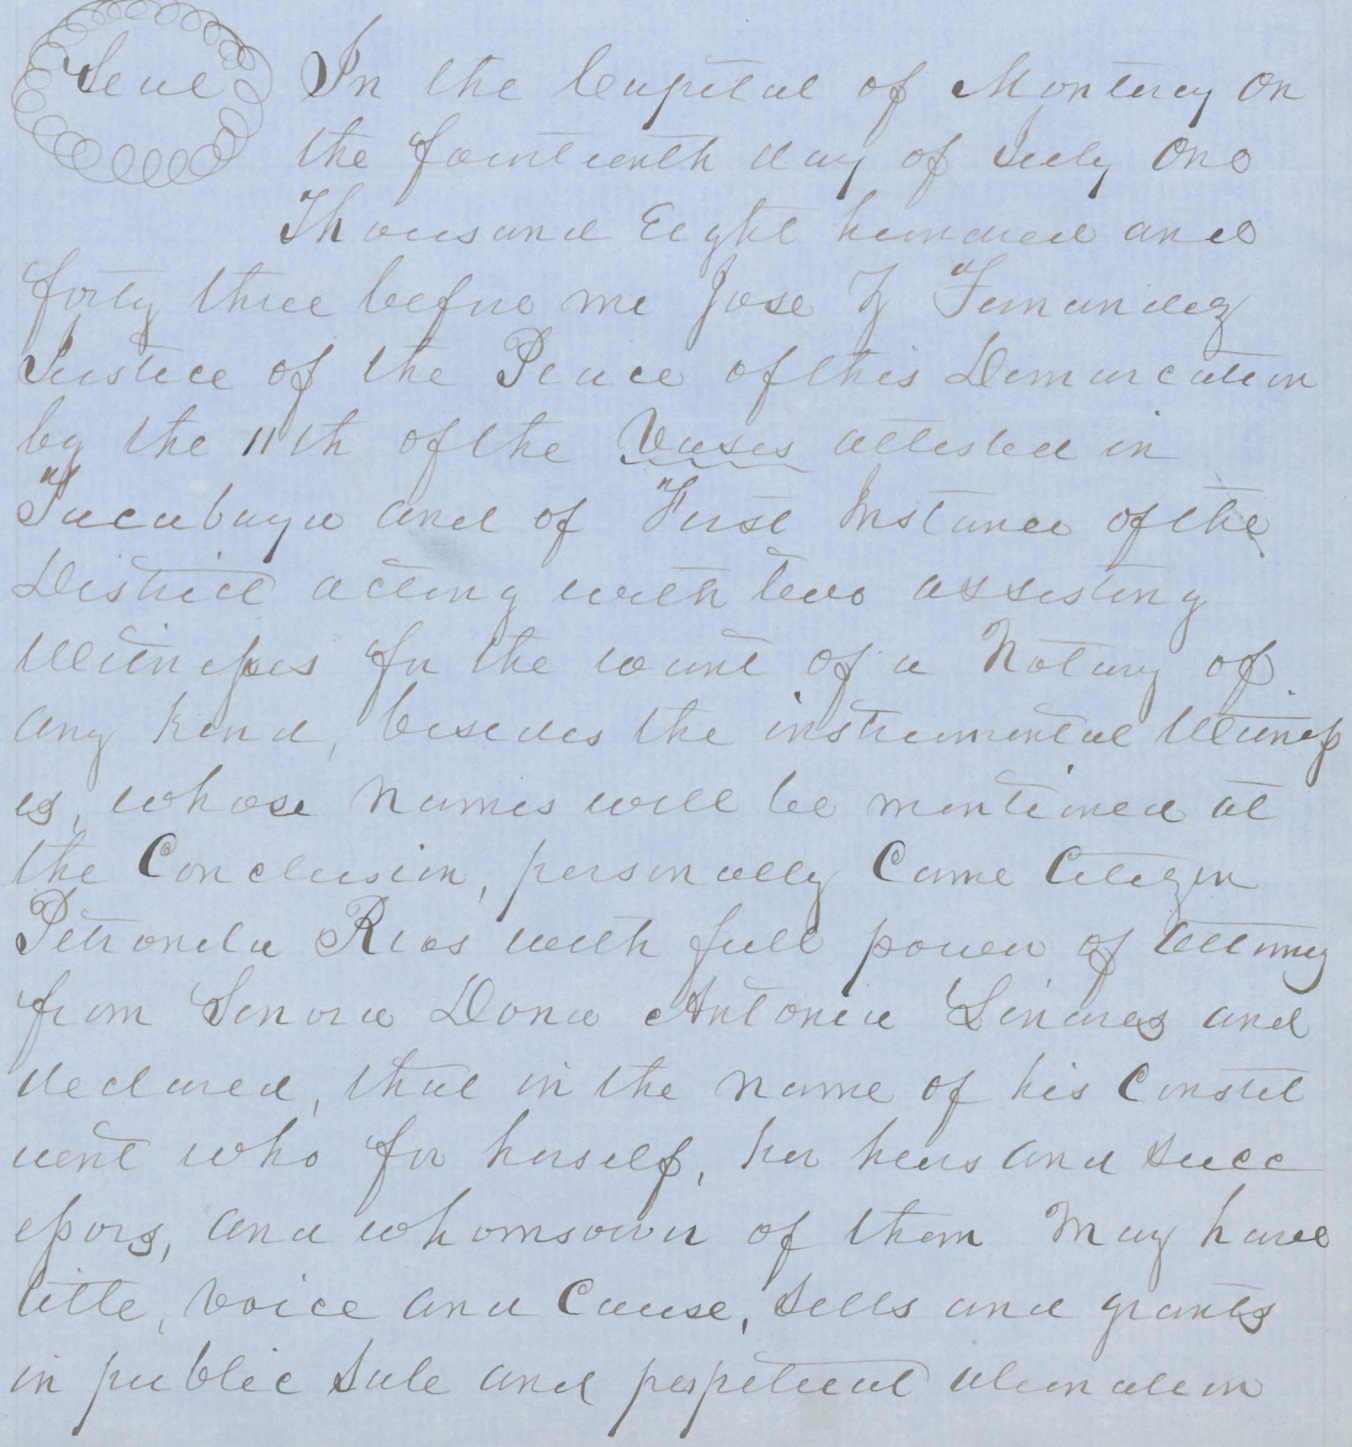 Seal In the Capital of Monterey on
the fourteenth day of July One
Thousand Eight hundred and
forty three before me Jose Z Fernandez
Justice of the Peace of this Demarcation
by the 11th of the Vases attested in
Tacubaya and of First Instance of the
District acting with two assisting
Witnesses for the want of a Notary of
any kind, besides the instrumental Witness
es, whose names will be mentioned at
the Conclusion, personally Came Citizen
Petronilu Rios with full power of Attorney
from Senora Dona Antonia Linares and
declared, that in the name of his Constit
uent who for herself, her heirs and succ
essors, and whomsoever of them May have
title, voice and Cause, sells and grants
in public Sale and perpetual alienation